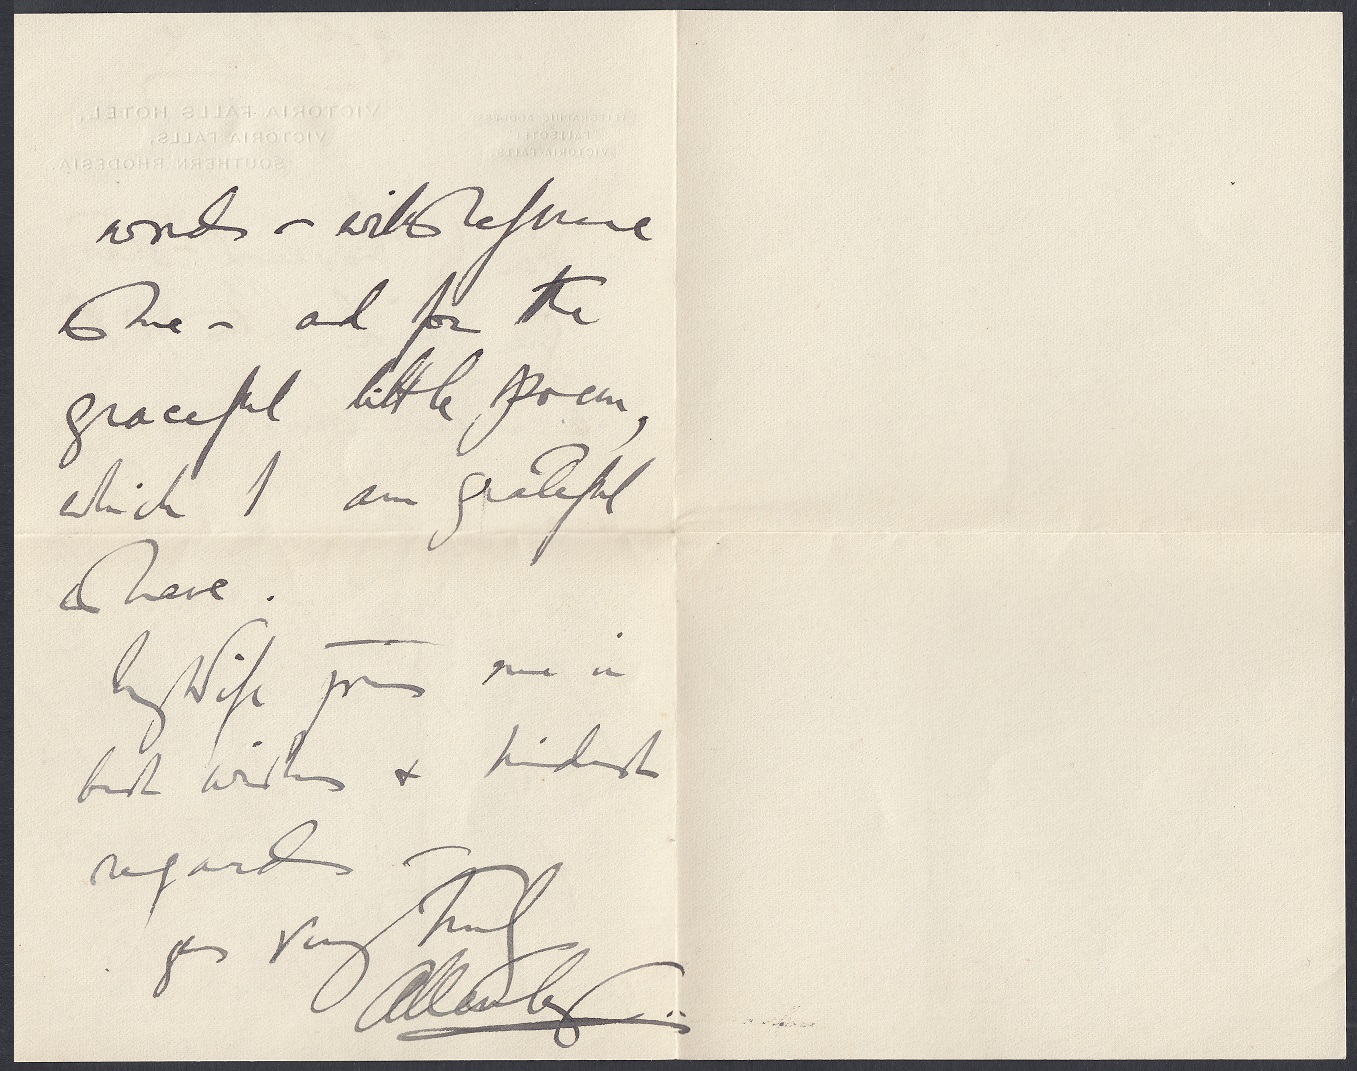 VICTORIA FALLS HOTEL,
VICTORIA FALLS,
SOUTHERN RHODESIA.
TELEGRAPHIC ADDRESS
FALLSOTEL
VICTORIA FALLS.
words – with reference
to me – and for the
graceful little poem,
which I am grateful
to have.
My Wife joins me in
best wishes & kindest
regards –
yrs very truly
Allenby